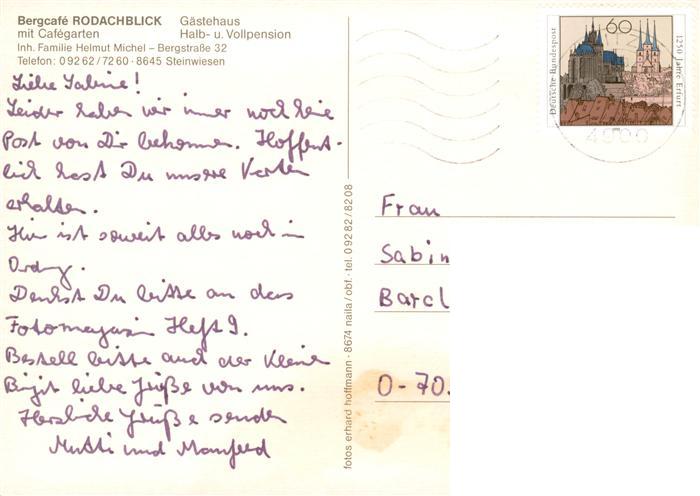 Bergcafé RODACHBLICK Gästehaus
mit Cafégarten Halb- u. Vollpension
Inh. Familie Helmut Michel – Bergstraße 32
Telefon: 0 92 62 / 72 60 · 8645 Steinwiesen
Liebe Sabine!
Leider haben wir immer noch keine
Post von Dir bekommen. Hoffent-
lich hast Du unsere Karten
erhalten.
Hier ist soweit alles noch in
Ordng.
Denkst Du bitte an das
Fotomagazin Heft 9.
Bestell bitte auch der Kleinen
Birgit liebe Grüße von uns.
Herzliche Grüße senden
Mutti und Manfred
fotos erhard hoffmann · 8674 naila/obf. · tel. 0 92 82 / 82 08
60
Deutsche Bundespost
1250 Jahre Erfurt
Frau
Sabin
Barcl
O-70.